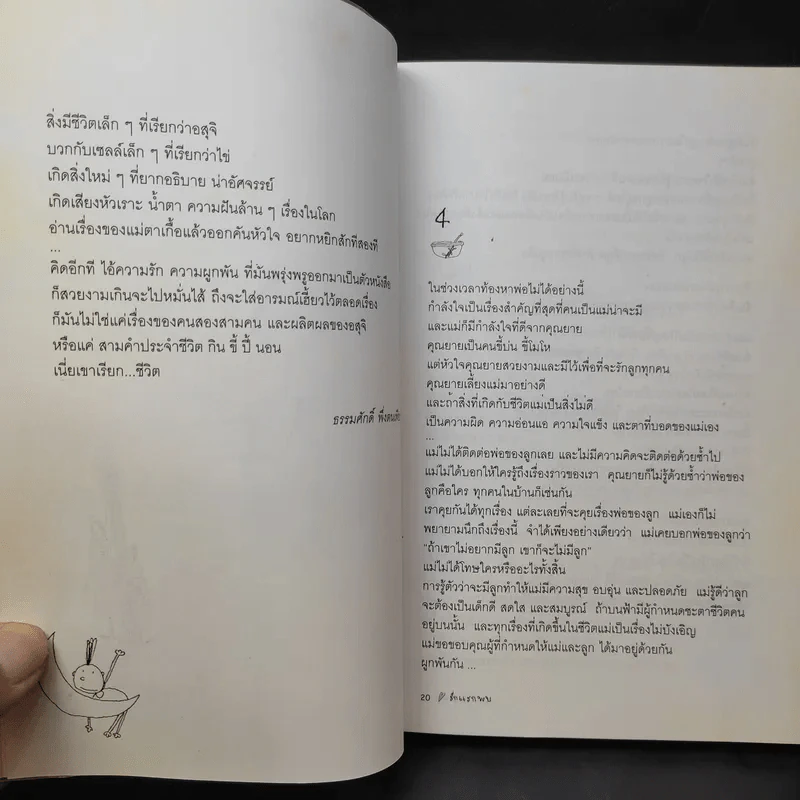 สิ่งมีชีวิตเล็ก ๆ ที่เรียกว่าอสุจิ
บวกกับเซลล์เล็ก ๆ ที่เรียกว่าไข่
เกิดสิ่งใหม่ ๆ ที่ยากอธิบาย น่าอัศจรรย์
เกิดเสียงหัวเราะ น้ำตา ความฝันล้าน ๆ เรื่องในโลก
อ่านเรื่องของแม่ตาเกื้อแล้วออกคันหัวใจ อยากหยิกสักทีสองที
...
คิดอีกที ไอ้ความรัก ความผูกพัน ที่มันพรุ่งพรูออกมาเป็นตัวหนังสือ
ก็สวยงามเกินจะไปหมั่นไส้ ถึงจะใส่อารมณ์เฮี้ยวไว้ตลอดเรื่อง
ก็มันไม่ใช่แค่เรื่องของคนสองสามคน และผลิตผลของอสุจิ
หรือแค่ สามคำประจำชีวิต กิน ขี้ ปี้ นอน
เนี่ยเขาเรียก...ชีวิต
ธรรมศักดิ์
4
ในช่วงเวลาท้องหาพ่อไม่ได้อย่างนี้
กำลังใจเป็นเรื่องสำคัญที่สุดที่คนเป็นแม่น่าจะมี
และแม่ก็มีกำลังใจที่ดีจากคุณยาย
คุณยายเป็นคนขี้บ่น ขี้โมโห
แต่หัวใจคุณยายสวยงามและมีไว้เพื่อที่จะรักลูกทุกคน
คุณยายเลี้ยงแม่มาอย่างดี
และถ้าสิ่งที่เกิดกับชีวิตแม่เป็นสิ่งไม่ดี
เป็นความผิด ความอ่อนแอ ความใจแข็ง และตาที่บอดของแม่เอง
...
แม่ไม่ได้ติดต่อพ่อของลูกเลย และไม่มีความคิดจะติดต่อด้วยซ้ำไป
แม่ไม่ได้บอกให้ใครรู้ถึงเรื่องราวของเรา คุณยายก็ไม่รู้ด้วยซ้ำว่าพ่อของ
ลูกคือใคร ทุกคนในบ้านก็เช่นกัน
เราคุยกันได้ทุกเรื่อง แต่ละเลยที่จะคุยเรื่องพ่อของลูก แม่เองก็ไม่
พยายามนึกถึงเรื่องนี้ จำได้เพียงอย่างเดียวว่า แม่เคยบอกพ่อของลูกว่า
"ถ้าเขาไม่อยากมีลูก เขาก็จะไม่มีลูก"
แม่ไม่ได้โทษใครหรืออะไรทั้งสิ้น
การรู้ตัวว่าจะมีลูกทำให้แม่มีความสุข อบอุ่น และปลอดภัย แม่รู้ดีว่าลูก
จะต้องเป็นเด็กดี สดใส และสมบูรณ์ ถ้าบนฟ้ามีผู้กำหนดชะตาชีวิตคน
อยู่บนนั้น และทุกเรื่องที่เกิดขึ้นในชีวิตแม่เป็นเรื่องไม่บังเอิญ
แม่ขอขอบคุณผู้ที่กำหนดให้แม่และลูก ได้มาอยู่ด้วยกัน
ผูกพันกัน ...
20 รักแรกพบ